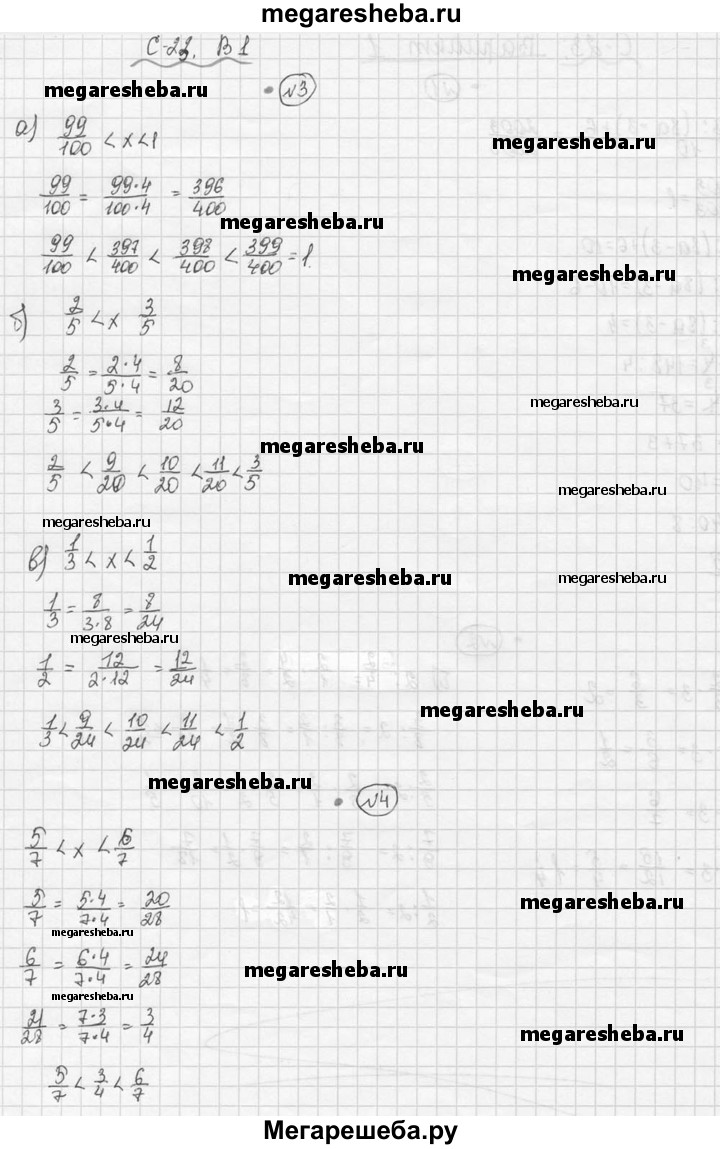 megaresheba.ru
С-23. В1
megaresheba.ru
№3
а) 99/100 < x < 1
megaresheba.ru
99/100 = 99·4/100·4 = 396/400
megaresheba.ru
99/100 < 397/400 < 398/400 < 399/400 = 1.
megaresheba.ru
б) 2/5 < x 3/5
2/5 = 2·4/5·4 = 8/20
megaresheba.ru
3/5 = 3·4/5·4 = 12/20
megaresheba.ru
2/5 < 9/20 < 10/20 < 11/20 < 3/5
megaresheba.ru
megaresheba.ru
в) 1/3 < x < 1/2
megaresheba.ru
1/3 = 8/3·8 = 8/24
megaresheba.ru
1/2 = 12/2·12 = 12/24
megaresheba.ru
1/3 < 9/24 < 10/24 < 11/24 < 1/2
megaresheba.ru
№4
5/7 < x < 6/7
5/7 = 5·4/7·4 = 20/28
megaresheba.ru
megaresheba.ru
6/7 = 6·4/7·4 = 24/28
megaresheba.ru
megaresheba.ru
21/28 = 7·3/7·4 = 3/4
megaresheba.ru
5/7 < 3/4 < 6/7
Мегарешеба.ру